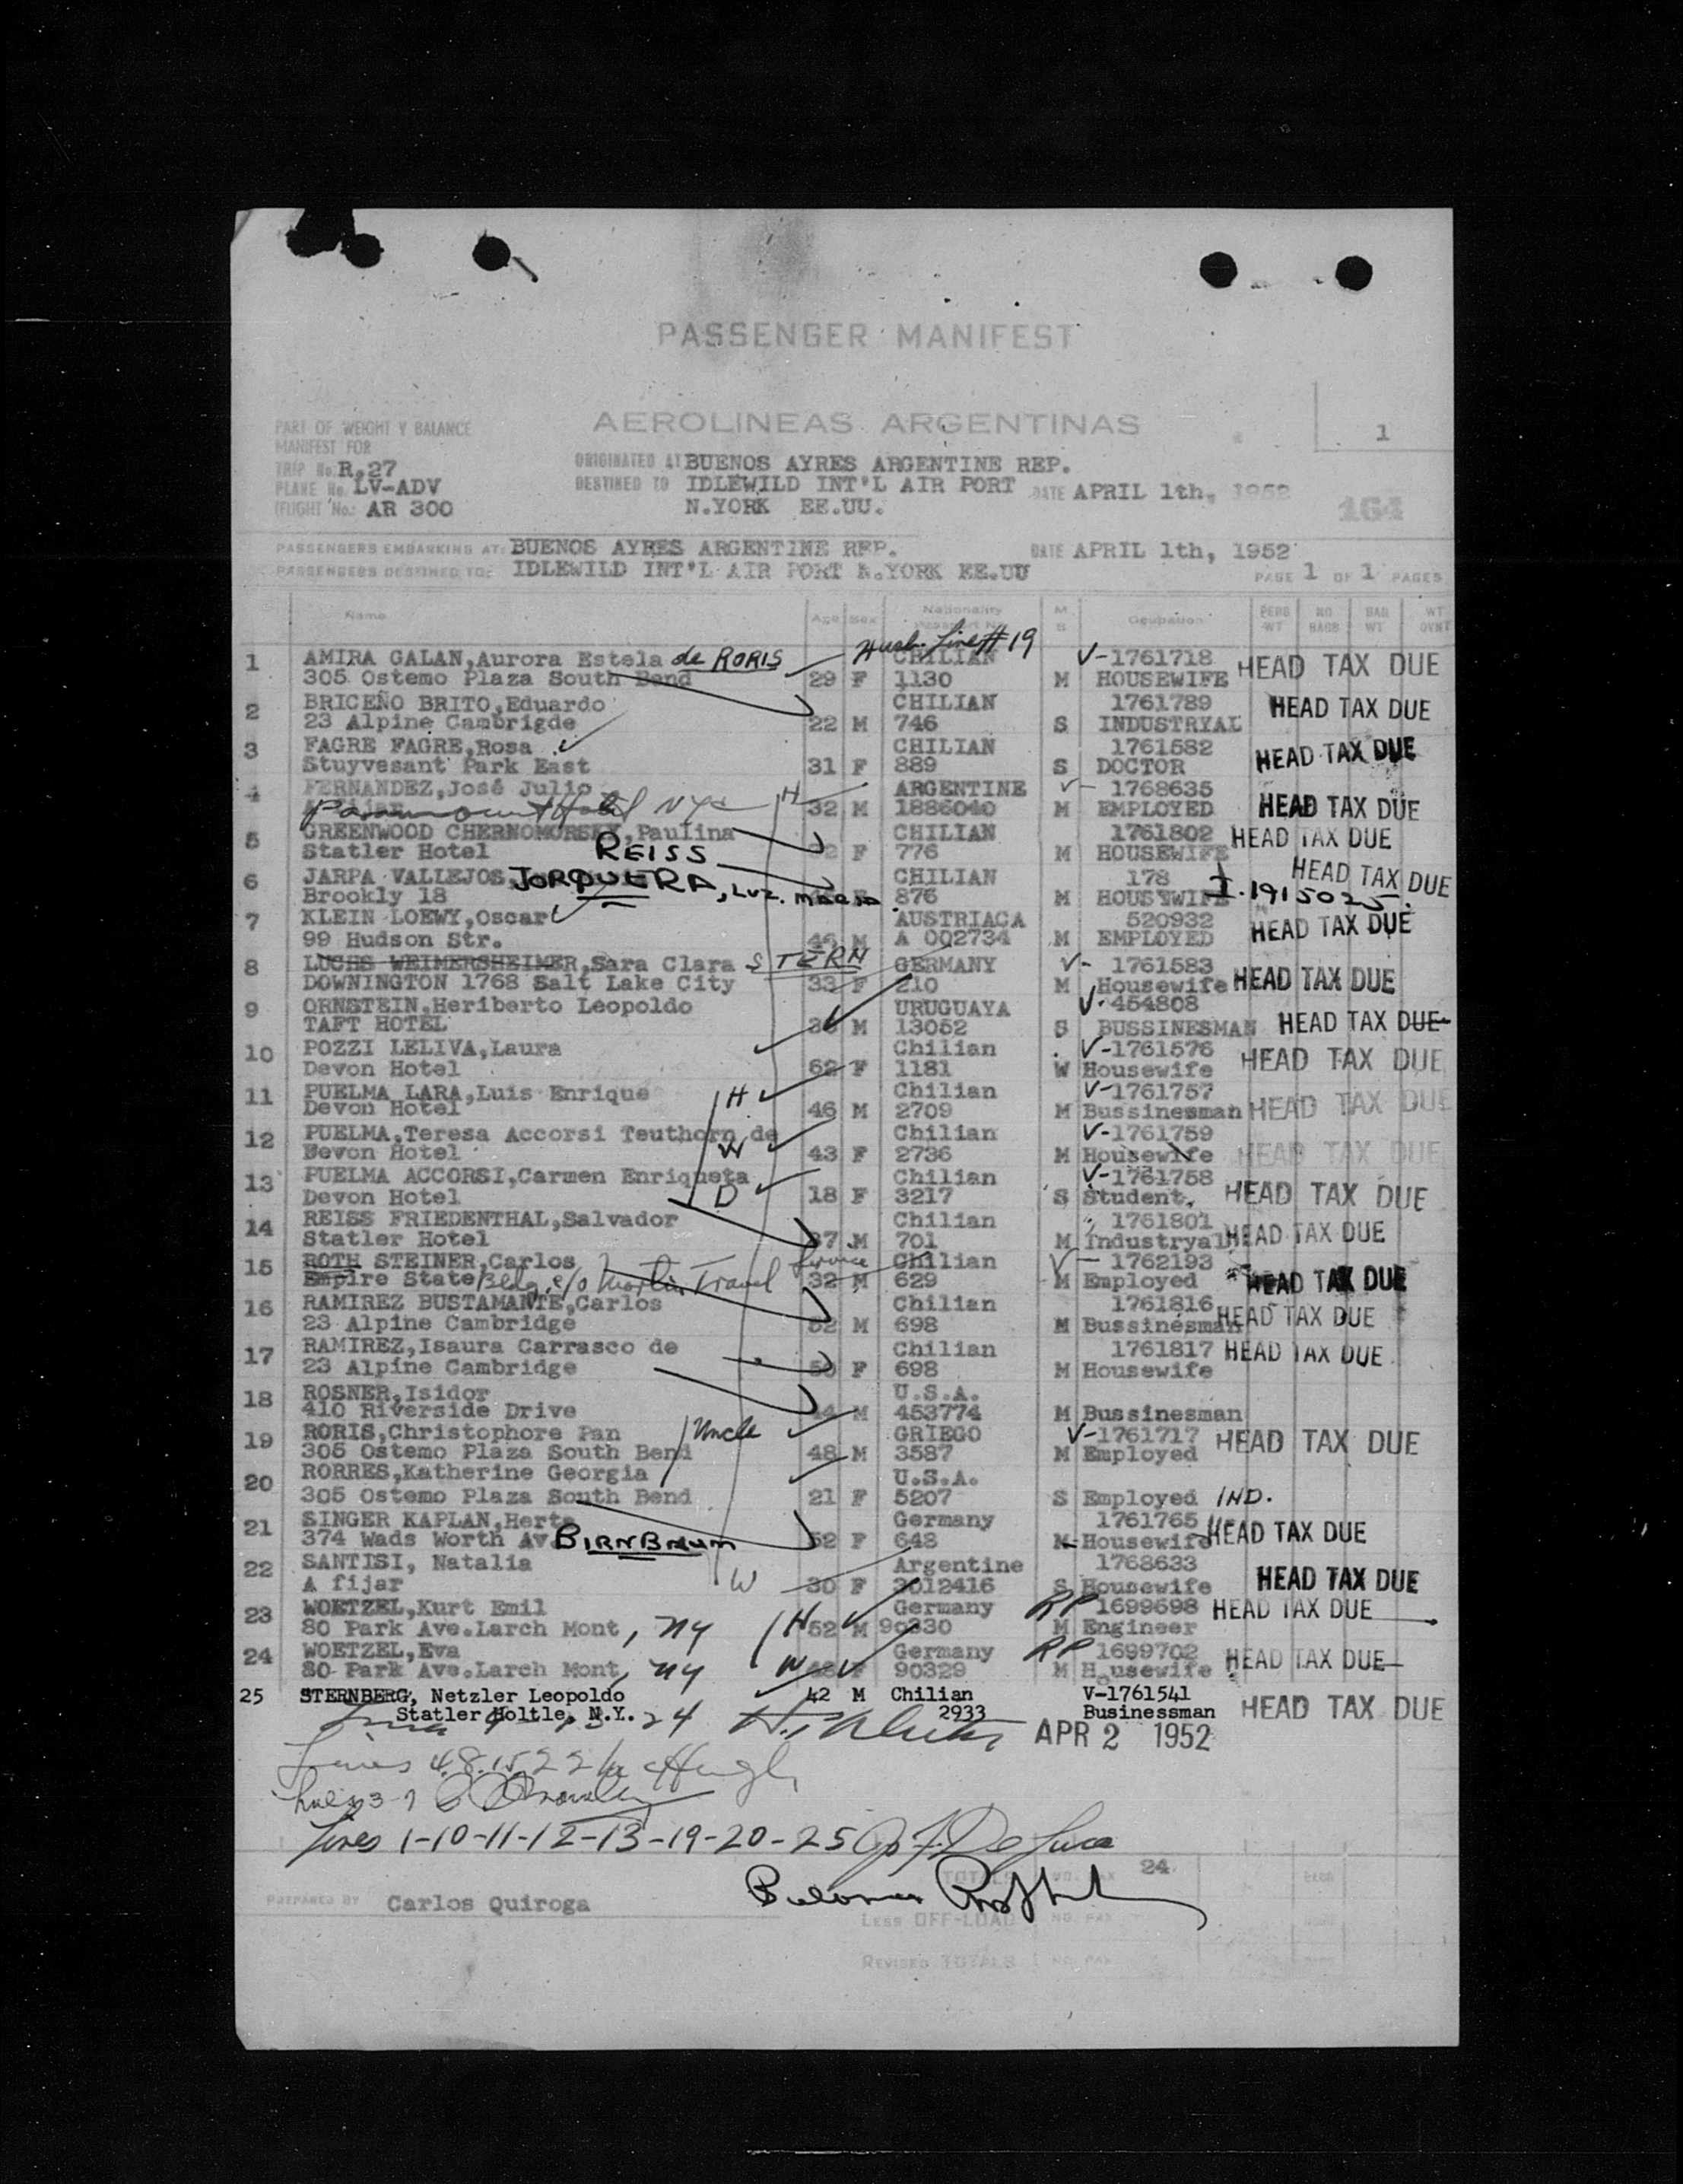 PASSENGER MANIFEST
AEROLINEAS ARGENTINAS
1
PART OF WEIGHT Y BALANCE
MANIFEST FOR
TRIP No. R.27
PLANE No. LV-ADV
(FLIGHT No.: AR 300
ORIGINATED AT BUENOS AYRES ARGENTINE REP.
DESTINED TO IDLEWILD INT'L AIR PORT DATE APRIL 1th, 1952
N.YORK EE.UU.
164
PASSENGERS EMBARKING AT: BUENOS AYRES ARGENTINE REP. DATE APRIL 1th, 1952
PASSENGERS DESTINED TO: IDLEWILD INT'L AIR PORT N.YORK EE.UU
PAGE 1 OF 1 PAGES
Name Age Sex Nationality Passport No M S Ocupation PERS WT NO BAGS BAG WT WT OVNT
Husb. Line # 19
1 AMIRA GALAN,Aurora Estela de RORIS CHILIAN V-1761718 HEAD TAX DUE
305 Ostemo Plaza South Bend 29 F 1130 M HOUSEWIFE
2 BRICEÑO BRITO,Eduardo CHILIAN 1761789 HEAD TAX DUE
23 Alpine Cambrigde 22 M 746 S INDUSTRYAL
3 FAGRE FAGRE,Rosa CHILIAN 1761582 HEAD TAX DUE
Stuyvesant Park East 31 F 889 S DOCTOR
4 FERNANDEZ,José Julio H ARGENTINE V- 1768635
Paramount Hotel NYC 32 M 1886040 M EMPLOYED HEAD TAX DUE
5 GREENWOOD CHERNOMORSKY,Paulina CHILIAN 1761802 HEAD TAX DUE
Statler Hotel REISS F 776 M HOUSEWIFE
6 JARPA VALLEJOS, JORQUERA, LUZ. MARIA CHILIAN 178 HEAD TAX DUE
Brookly 18 876 M HOUSEWIFE I.1915025.
7 KLEIN LOEWY,Oscar AUSTRIACA 520932 HEAD TAX DUE
99 Hudson Str. 46 M A 002734 M EMPLOYED
8 LUCHS WEIMERSHEIMER,Sara Clara STERN GERMANY V- 1761583 HEAD TAX DUE
DOWNINGTON 1768 Salt Lake City 33 F 210 M Housewife
9 ORNSTEIN,Heriberto Leopoldo URUGUAYA V-454808
TAFT HOTEL M 13052 S BUSSINESMAN HEAD TAX DUE
10 POZZI LELIVA,Laura Chilian V-1761576 HEAD TAX DUE
Devon Hotel 62 F 1181 W Housewife
11 PUELMA LARA,Luis Enrique H Chilian V-1761757 HEAD TAX DUE
Devon Hotel 46 M 2709 M Bussinesman
12 PUELMA,Teresa Accorsi Teuthorn de Chilian V-1761759
Devon Hotel W 43 F 2736 M Housewife HEAD TAX DUE
13 PUELMA ACCORSI,Carmen Enriqueta Chilian V-1761758
Devon Hotel D 18 F 3217 S Student. HEAD TAX DUE
14 REISS FRIEDENTHAL,Salvador Chilian 1761801 HEAD TAX DUE
Statler Hotel 37 M 701 M Industryal
15 ROTH STEINER,Carlos Service Chilian V- 1762193
Empire State Bldg. c/o Martin Travel 32 M 629 M Employed HEAD TAX DUE
16 RAMIREZ BUSTAMANTE,Carlos Chilian 1761816 HEAD TAX DUE
23 Alpine Cambridge 52 M 698 M Bussinesman
17 RAMIREZ,Isaura Carrasco de Chilian 1761817 HEAD TAX DUE
23 Alpine Cambridge 50 F 698 M Housewife
18 ROSNER,Isidor U.S.A.
410 Riverside Drive 44 M 453774 M Bussinesman
19 RORIS,Christophore Pan Uncle GRIEGO V-1761717 HEAD TAX DUE
305 Ostemo Plaza South Bend 48 M 3587 M Employed
20 RORRES,Katherine Georgia U.S.A.
305 Ostemo Plaza South Bend 21 F 5207 S Employed IND.
21 SINGER KAPLAN,Herta Germany 1761765 HEAD TAX DUE
374 Wads Worth Av BIRNBAUM 52 F 648 M Housewife
22 SANTISI, Natalia Argentine 1768633
A fijar W 30 F 3012416 S Housewife HEAD TAX DUE
23 WOETZEL,Kurt Emil Germany RP 1699698 HEAD TAX DUE
80 Park Ave.Larch Mont, NY H 52 M 90330 M Engineer
24 WOETZEL,Eva Germany RP 1699702 HEAD TAX DUE
80 Park Ave.Larch Mont, NY W F 90329 M Housewife
25 STERNBERG, Netzler Leopoldo 42 M Chilian V-1761541 HEAD TAX DUE
Statler Holtle, N.Y. 2933 Businessman
24
APR 2 1952
Lines 4.8.15.22
Lines 1-10-11-12-13-19-20-25 De Luca
TOTALS NO. PAX 24
PREPARED BY Carlos Quiroga
LESS OFF-LOAD NO. PAX
REVISED TOTALS NO. PAX